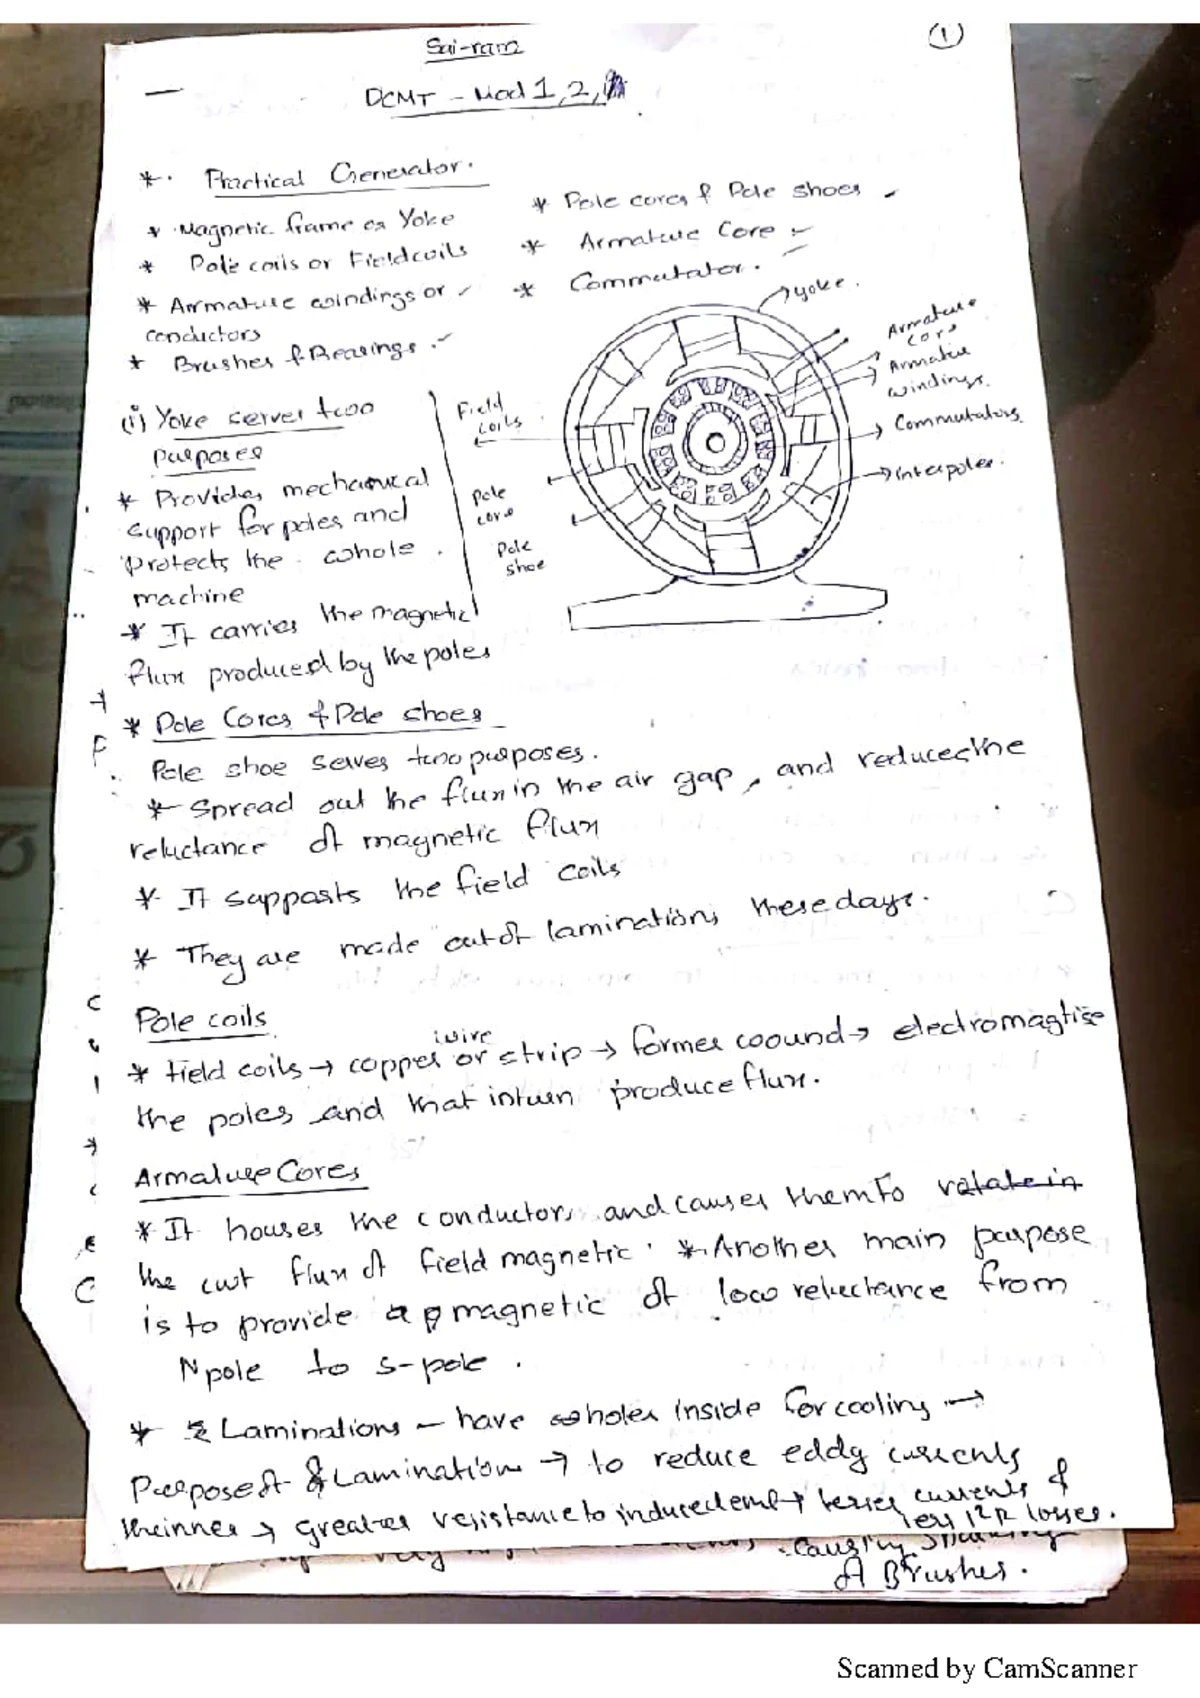 Sai-ram
1
DCMT - Mod 1, 2,
*. Practical Generator.
* Magnetic frame or Yoke
* Pole cores & Pole shoes
* Pole coils or Field coils
* Armature Core
* Armature windings or
conductors
* Commutator.
* Brushes & Bearings.
(i) Yoke serves two
purposes
* Provides mechanical
support for poles and
protects the whole
machine
* It carries the magnetic
flux produced by the poles
Yoke.
Armature
core
Armature
windings.
Commutators
Interpoles.
Field
coils
Pole
core
Pole
shoe
* Pole Cores & Pole shoes
Pole shoe serves two purposes.
* Spread out the flux in the air gap, and reduces the
reluctance of magnetic flux
* It supports the field coils
* They are made out of laminations these days.
Pole coils
wire
* Field coils → copper or strip → former wound → electromagtise
the poles and that inturn produce flux.
Armature Cores
* It houses the conductors and causes them to rotate in
the cut flux of field magnetic. * Another main purpose
is to provide a magnetic of low reluctance from
N pole to s-pole.
* Laminations - have holes inside for cooling →
Purpose of Lamination → to reduce eddy currents
thinner → greater resistance to induced emf → lesser currents &
less I²R losses.
very
causing
of Brushes.
Scanned by CamScanner